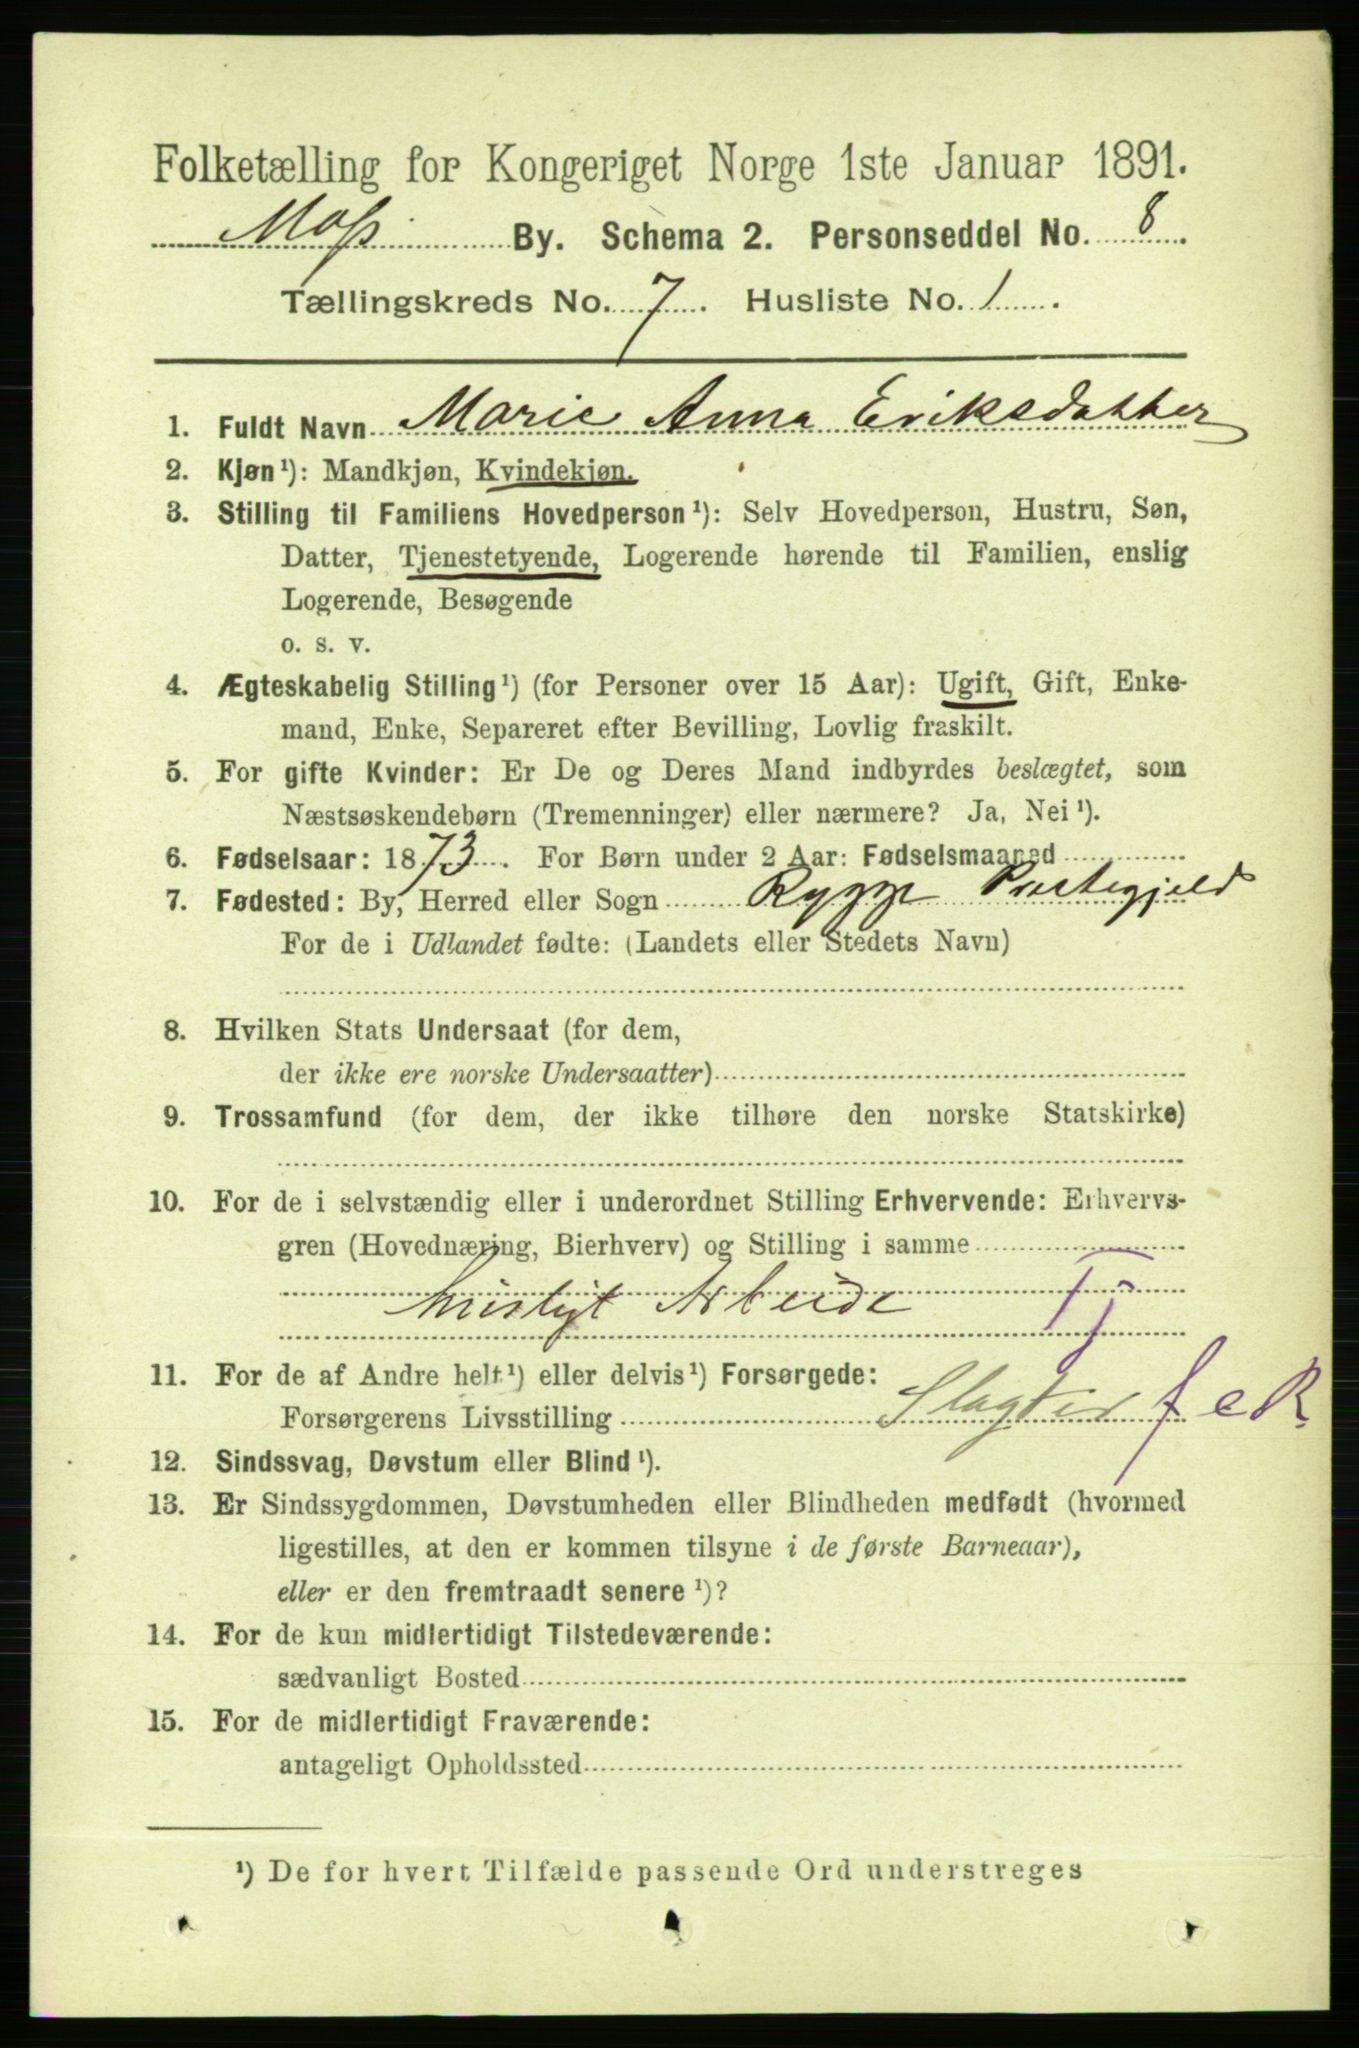 Folketælling for Kongeriget Norge 1ste Januar 1891.
Moss By. Schema 2. Personseddel No. 8.
Tællingskreds No. 7. Husliste No. 1.
1. Fuldt Navn Marie Anna Eriksdatter
2. Kjøn¹): Mandkjøn, Kvindekjøn.
3. Stilling til Familiens Hovedperson¹): Selv Hovedperson, Hustru, Søn,
Datter, Tjenestetyende, Logerende hørende til Familien, enslig
Logerende, Besøgende
o. s. v.
4. Ægteskabelig Stilling¹) (for Personer over 15 Aar): Ugift, Gift, Enke-
mand, Enke, Separeret efter Bevilling, Lovlig fraskilt.
5. For gifte Kvinder: Er De og Deres Mand indbyrdes beslægtet, som
Næstsøskendebørn (Tremenninger) eller nærmere? Ja, Nei¹).
6. Fødselsaar: 1873. For Børn under 2 Aar: Fødselsmaaned
7. Fødested: By, Herred eller Sogn Rygge Præstegjeld
For de i Udlandet fødte: (Landets eller Stedets Navn)
8. Hvilken Stats Undersaat (for dem,
der ikke ere norske Undersaatter)
9. Trossamfund (for dem, der ikke tilhøre den norske Statskirke)
10. For de i selvstændig eller i underordnet Stilling Erhvervende: Erhvervs-
gren (Hovednæring, Bierhverv) og Stilling i samme
huisligt Arbeide Tj
11. For de af Andre helt¹) eller delvis¹) Forsørgede:
Forsørgerens Livsstilling Slagter f e R
12. Sindssvag, Døvstum eller Blind¹).
13. Er Sindssygdommen, Døvstumheden eller Blindheden medfødt (hvormed
ligestilles, at den er kommen tilsyne i de første Barneaar),
eller er den fremtraadt senere¹)?
14. For de kun midlertidigt Tilstedeværende:
sædvanligt Bosted
15. For de midlertidigt Fraværende:
antageligt Opholdssted
¹) De for hvert Tilfælde passende Ord understreges